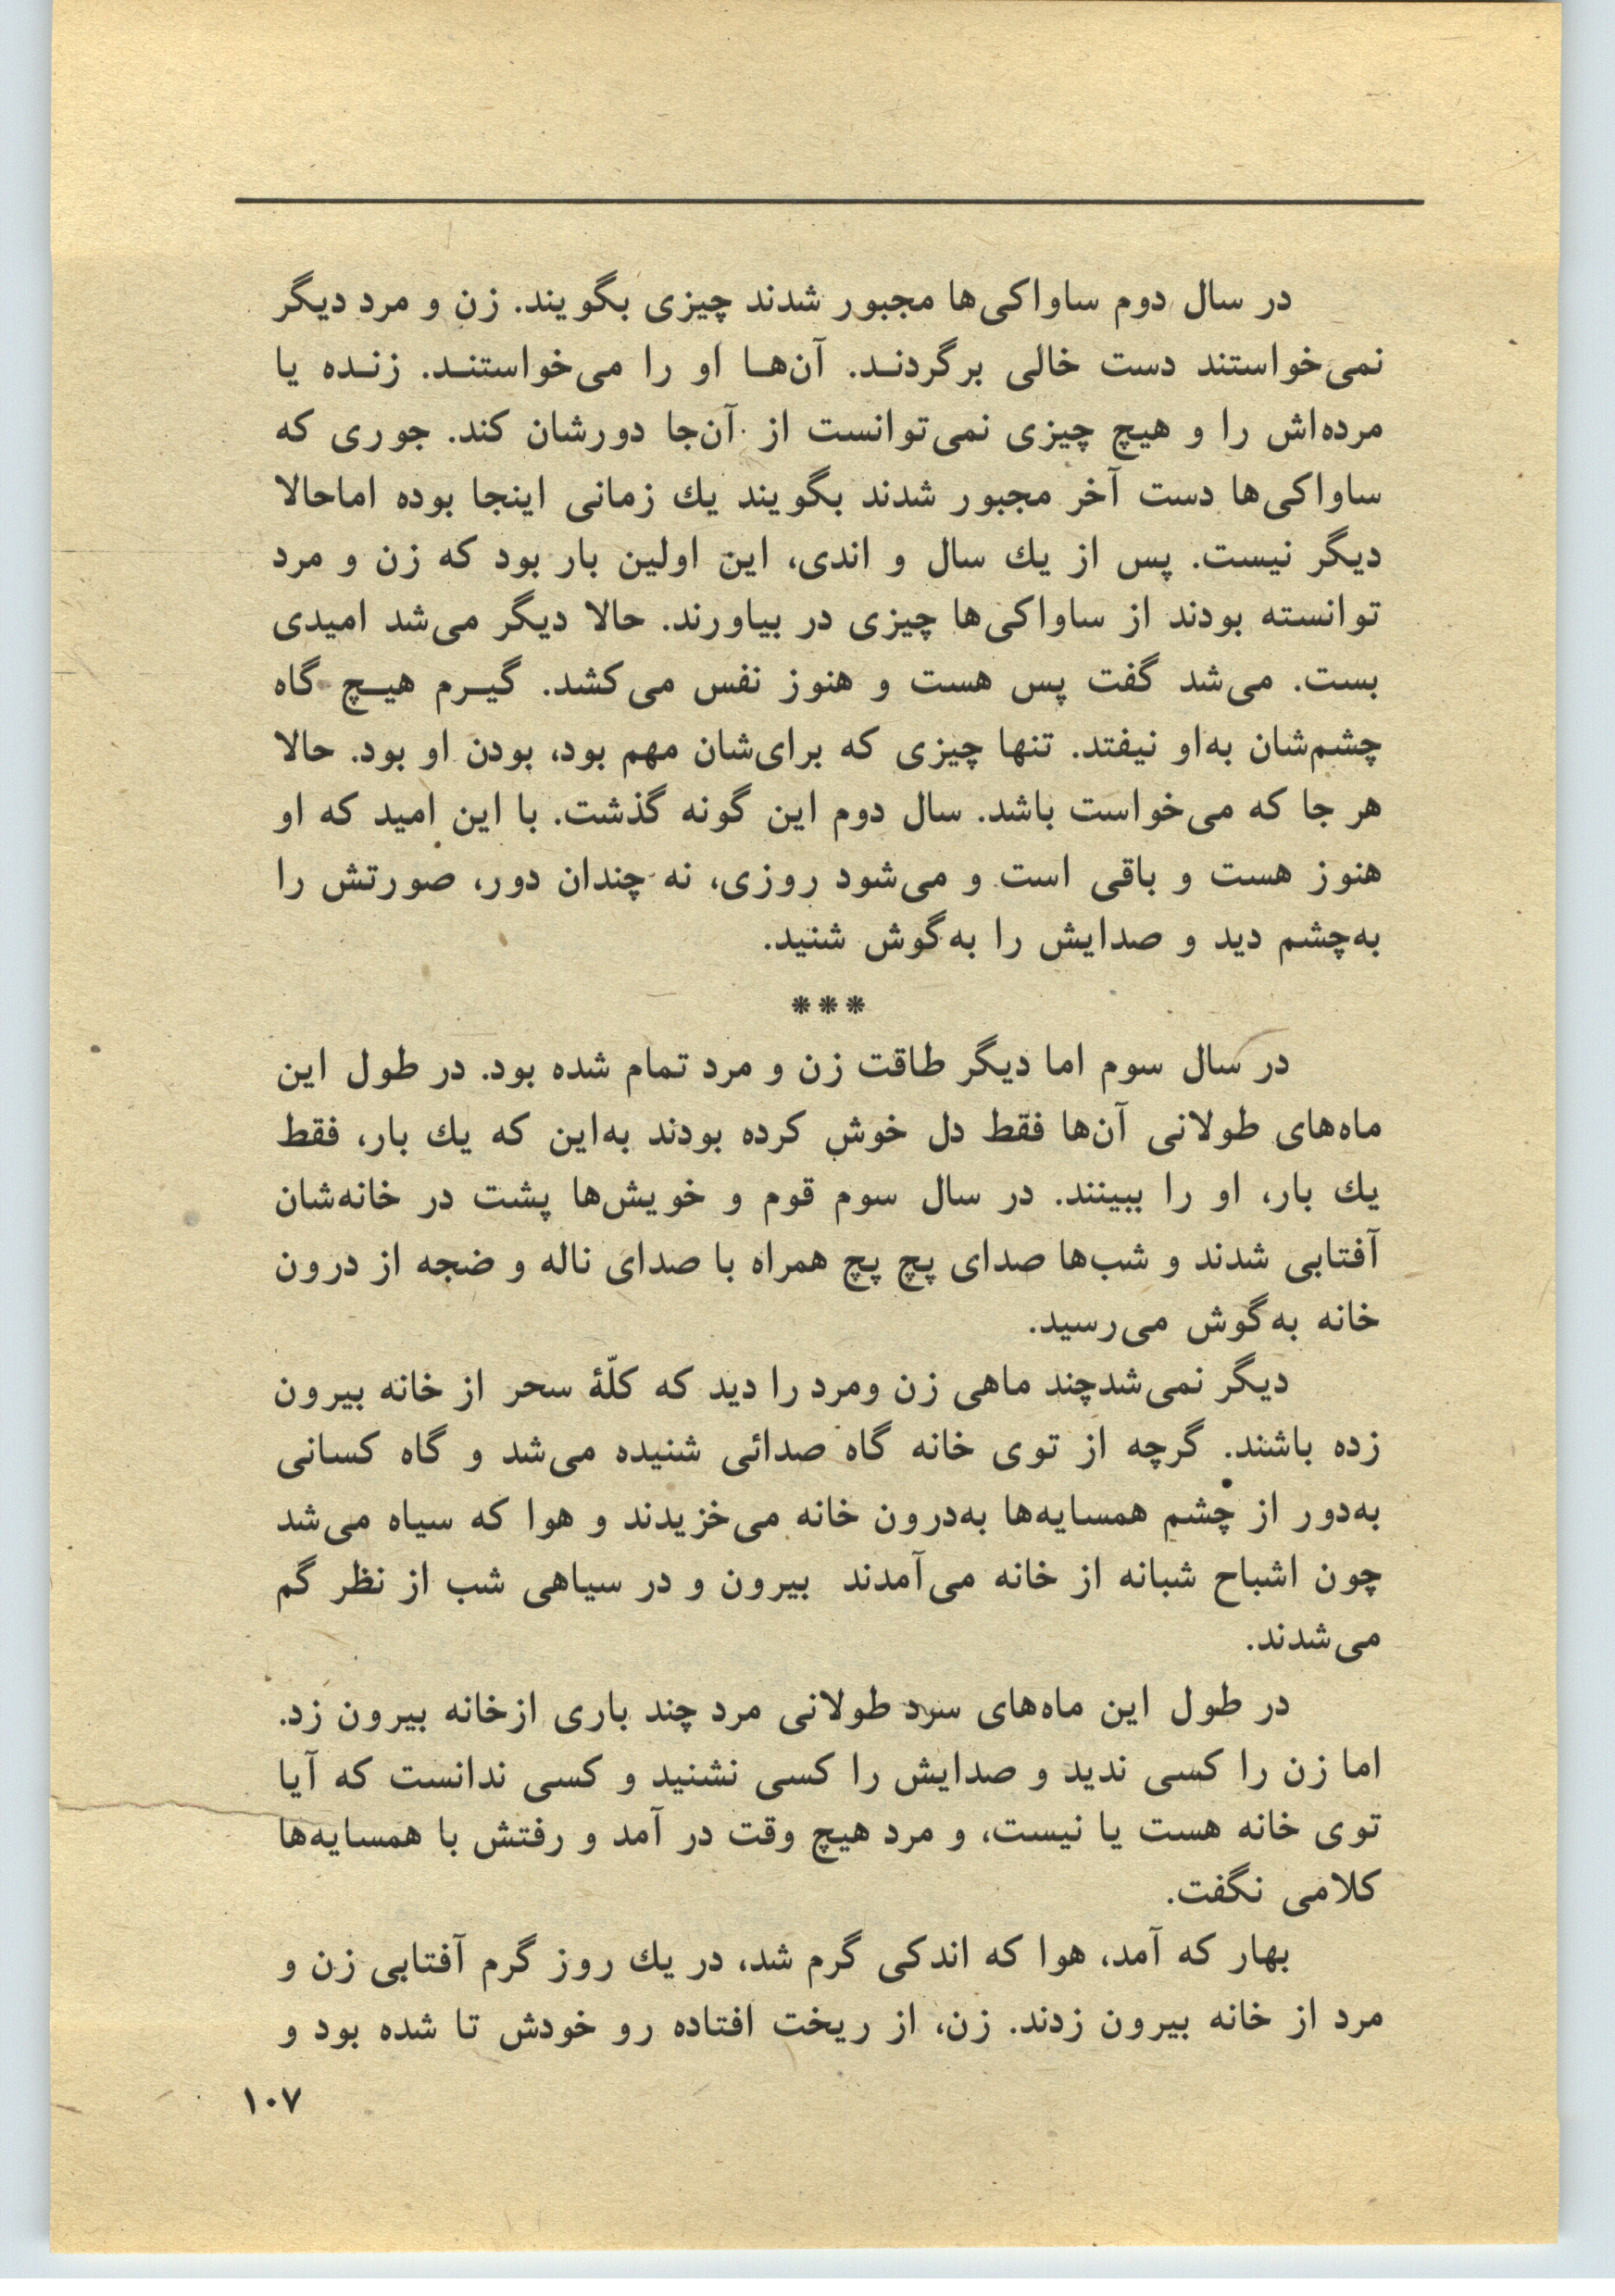 در سال دوم ساواکی‌ها مجبور شدند چیزی بگویند. زن و مرد دیگر
نمی‌خواستند دست خالی برگردنـد. آن‌هـا او را می‌خواستنـد. زنـده یا
مرده‌اش را و هیچ چیزی نمی‌توانست از آن‌جا دورشان کند. جوری که
ساواکی‌ها دست آخر مجبور شدند بگویند یك زمانی اینجا بوده اماحالا
دیگر نیست. پس از یك سال و اندی، این اولین بار بود که زن و مرد
توانسته بودند از ساواکی‌ها چیزی در بیاورند. حالا دیگر می‌شد امیدی
بست. می‌شد گفت پس هست و هنوز نفس می‌کشد. گیـرم هیـچ گاه
چشم‌شان به‌او نیفتد. تنها چیزی که برای‌شان مهم بود، بودن او بود. حالا
هر جا که می‌خواست باشد. سال دوم این گونه گذشت. با این امید که او
هنوز هست و باقی است و می‌شود روزی، نه چندان دور، صورتش را
به‌چشم دید و صدایش را به‌گوش شنید.
***
در سال سوم اما دیگر طاقت زن و مرد تمام شده بود. در طول این
ماه‌های طولانی آن‌ها فقط دل خوش کرده بودند به‌این که یك بار، فقط
یك بار، او را ببینند. در سال سوم قوم و خویش‌ها پشت در خانه‌شان
آفتابی شدند و شب‌ها صدای پچ پچ همراه با صدای ناله و ضجه از درون
خانه به‌گوش می‌رسید.
دیگر نمی‌شدچند ماهی زن ومرد را دید که کلّهٔ سحر از خانه بیرون
زده باشند. گرچه از توی خانه گاه صدائی شنیده می‌شد و گاه کسانی
به‌دور از چشم همسایه‌ها به‌درون خانه می‌خزیدند و هوا که سیاه می‌شد
چون اشباح شبانه از خانه می‌آمدند بیرون و در سیاهی شب از نظر گم
می‌شدند.
در طول این ماه‌های سرد طولانی مرد چند باری ازخانه بیرون زد.
اما زن را کسی ندید و صدایش را کسی نشنید و کسی ندانست که آیا
توی خانه هست یا نیست، و مرد هیچ وقت در آمد و رفتش با همسایه‌ها
کلامی نگفت.
بهار که آمد، هوا که اندکی گرم شد، در یك روز گرم آفتابی زن و
مرد از خانه بیرون زدند. زن، از ریخت افتاده رو خودش تا شده بود و
۱۰۷